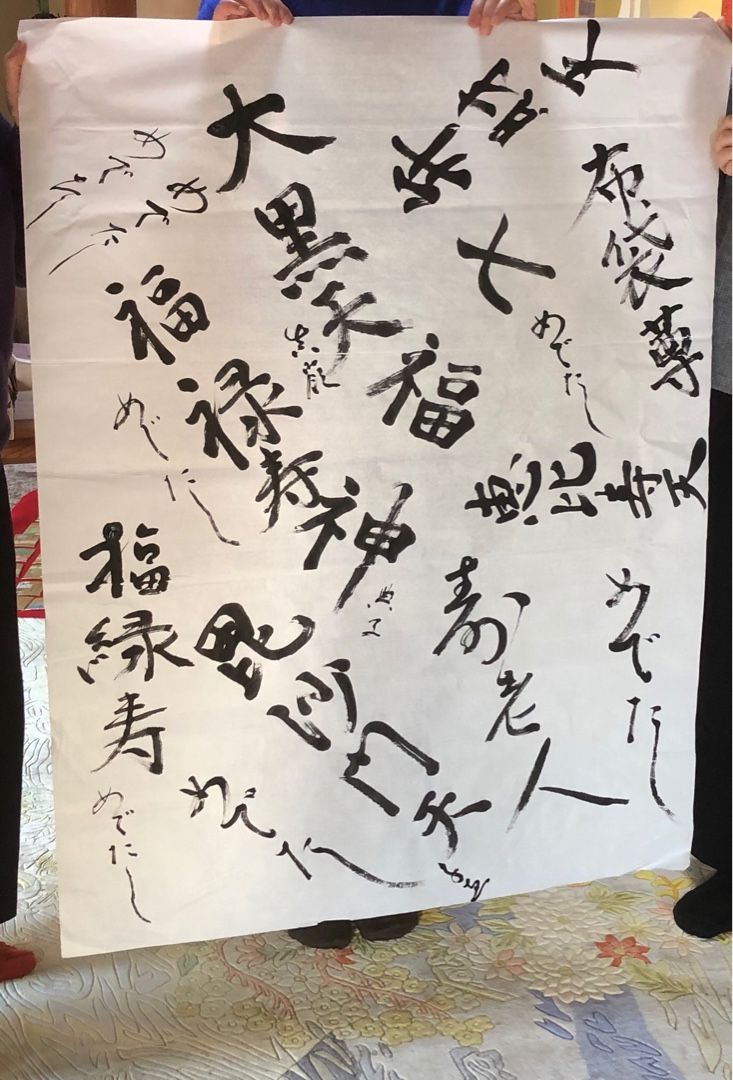 布袋
めでたし
恵比寿天
めでたし
寿老人
大黒天
福
福禄寿神
めでたし
めでたし
めでたし
毘沙門天
めでたし
福緑寿
めでたし